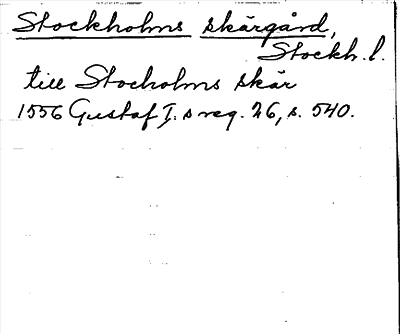 Stockholms skärgård,
Stockh. l.
till Stocholms skär
1556 Gustaf I. s reg. 26, s. 540.